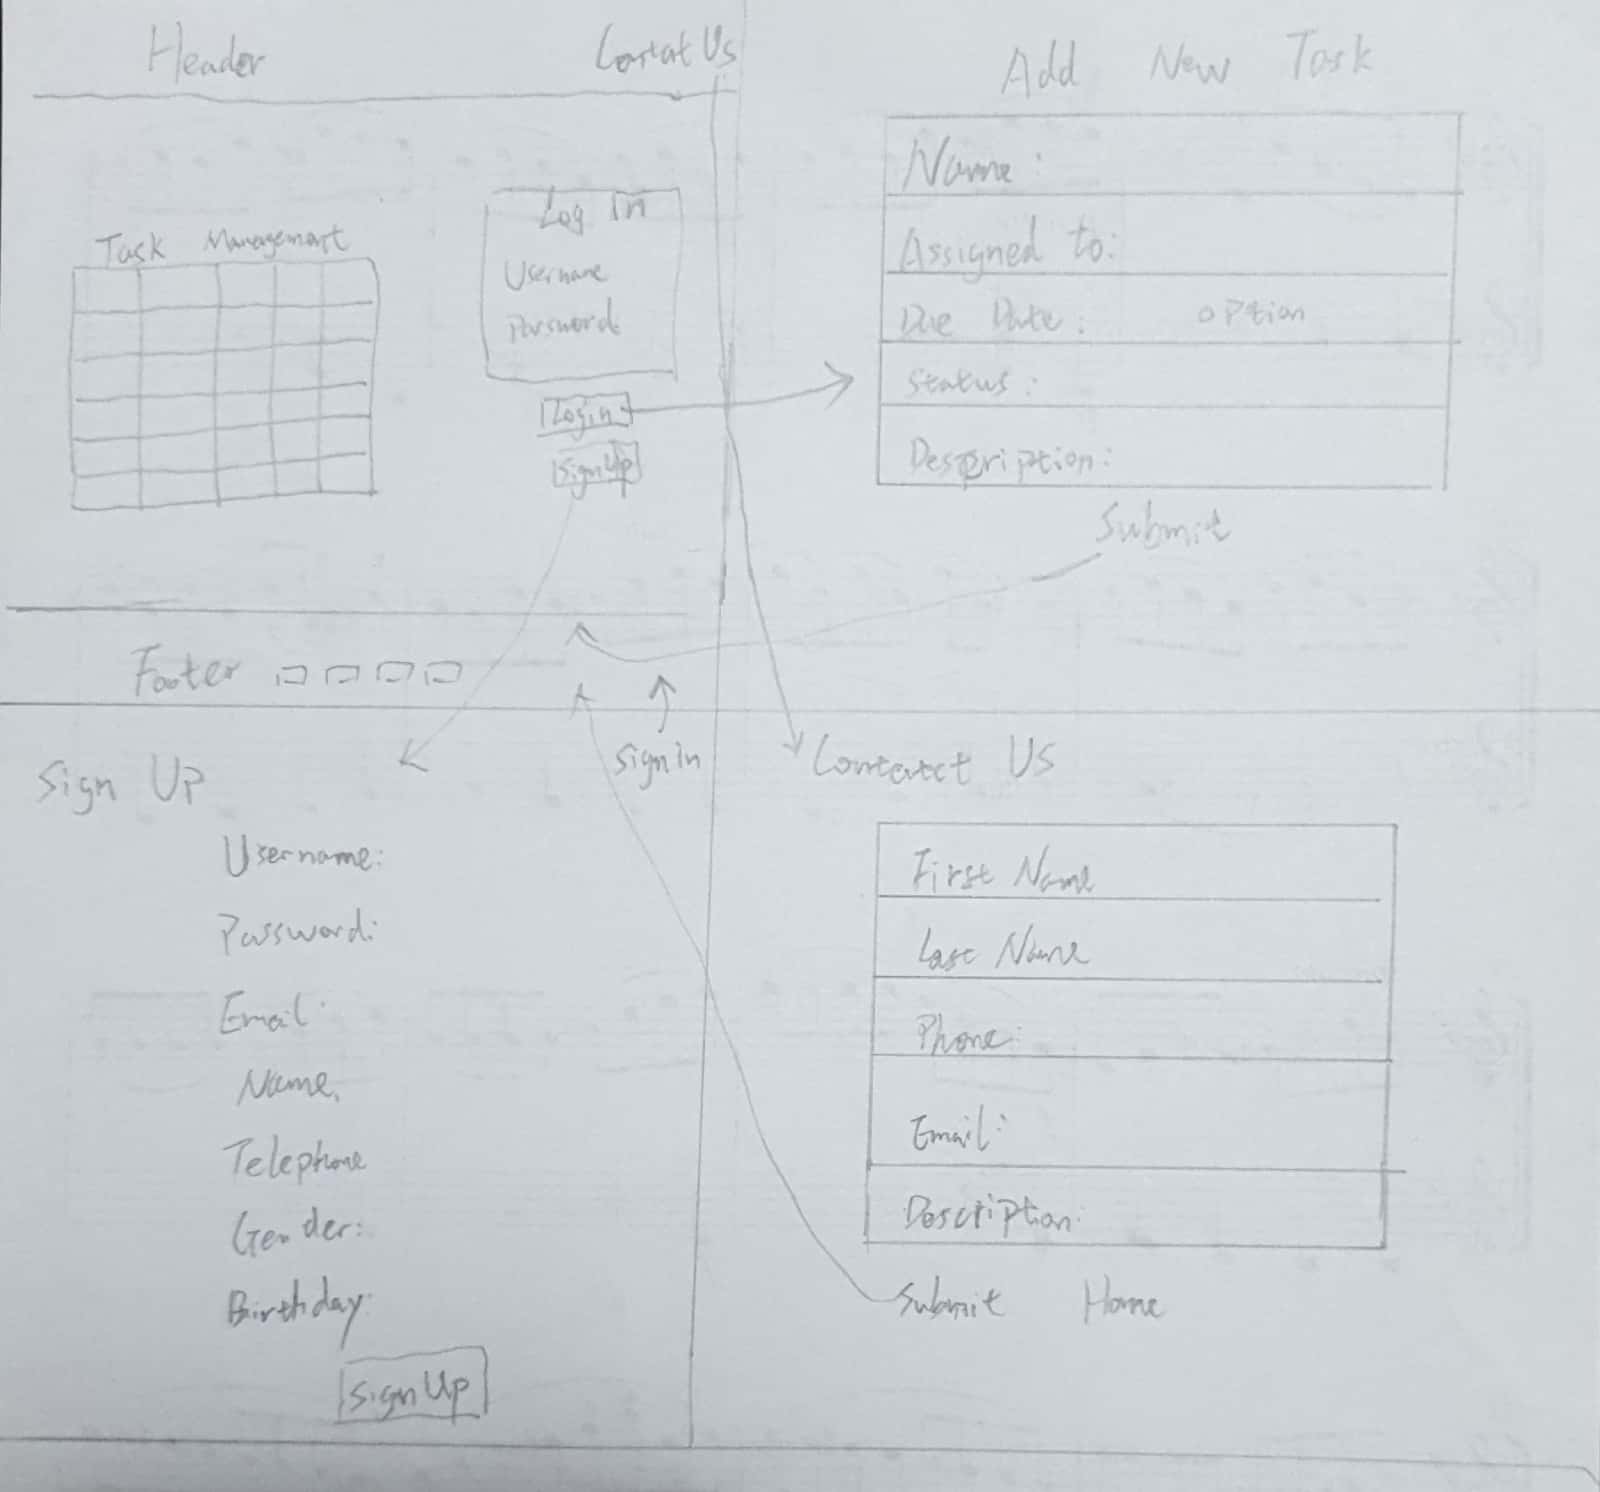 Header
Contat Us
Task Management
Log In
Username
Password
Login
Sign Up
Footer
Add New Task
Name:
Assigned to:
Due Date: option
Status:
Description:
Submit
Sign Up
Username:
Password:
Email:
Name.
Telephone
Gender:
Birthday:
Sign Up
Sign in
Contatct Us
First Name
Last Name
Phone:
Email:
Description:
Submit Home